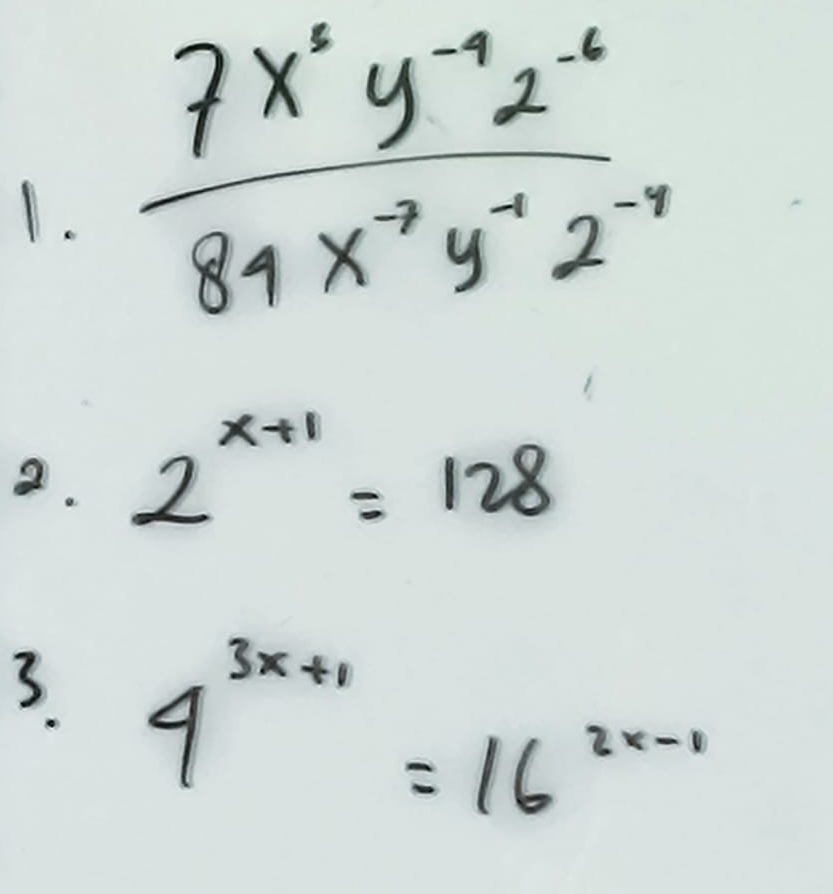 7x³ y⁻⁴ 2⁻⁶
1.
84 x⁻⁷ y⁻¹ 2⁻⁴
2. 2ˣ⁺¹ = 128
3. 4³ˣ⁺¹ = 16²ˣ⁻¹